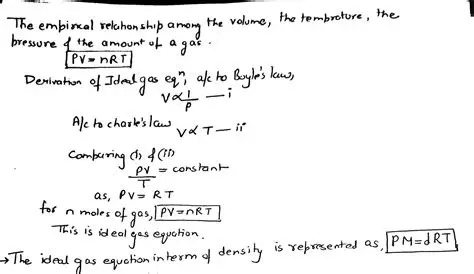 The empirical relationship among the volume, the temprature, the
pressure & the amount of a gas.
PV=nRT
Derivation of Ideal gas eqⁿ, a/c to Boyle's law,
V∝1/P — i
A/c to charle's law V∝T — ii
Comparing (i) & (ii)
PV/T = constant
as, PV= RT
for n moles of gas, PV=nRT
This is ideal gas equation.
→ The ideal gas equation interm of density is represented as, PM=dRT